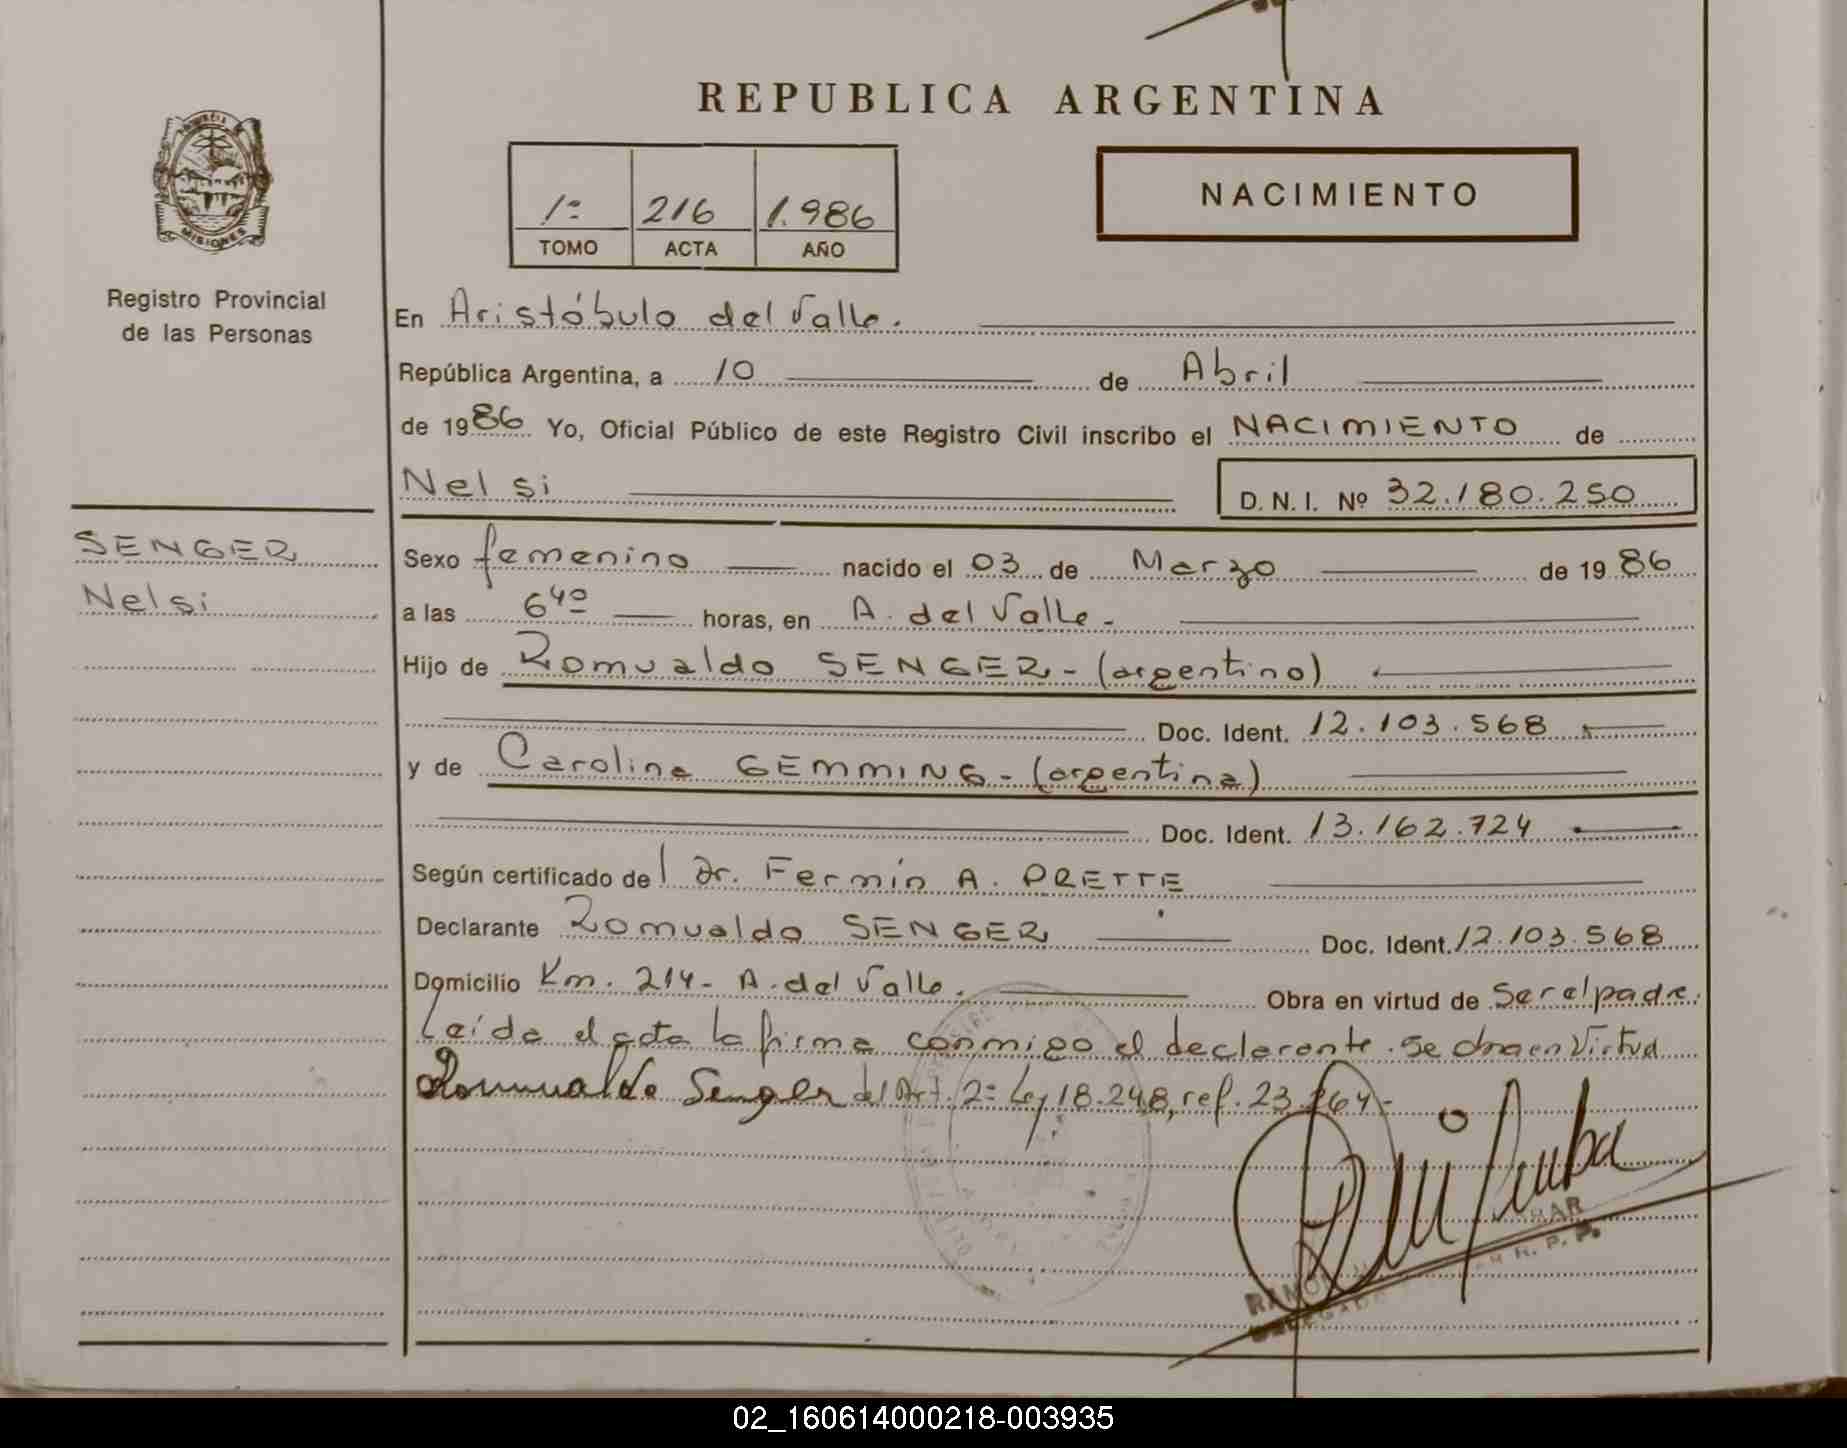 REPUBLICA ARGENTINA
MISIONES
1º 216 1.986
TOMO ACTA AÑO
NACIMIENTO
Registro Provincial
de las Personas
En Aristóbulo del Valle.
República Argentina, a 10 de Abril
de 1986 Yo, Oficial Público de este Registro Civil inscribo el NACIMIENTO de
Nelsi D. N. I. Nº 32.180.250
SENGER
Nelsi
Sexo femenino nacido el 03 de Marzo de 1986
a las 6 40 horas, en A. del Valle -
Hijo de Romualdo SENGER - (argentino)
Doc. Ident. 12.103.568
y de Carolina GEMMING - (argentina)
Doc. Ident. 13.162.724
Según certificado del Dr. Fermín A. PRETTE
Declarante Romualdo SENGER Doc. Ident. 12.103.568
Domicilio Km. 214 - A. del Valle. Obra en virtud de Ser el padre.
Leída el acta la firma conmigo el declarante. Se obra en Virtud
Romualdo Senger del Art. 2º Ley 18.248, ref. 23.264 -
RAMON
DELEGADO R. P. P.
02_160614000218-003935